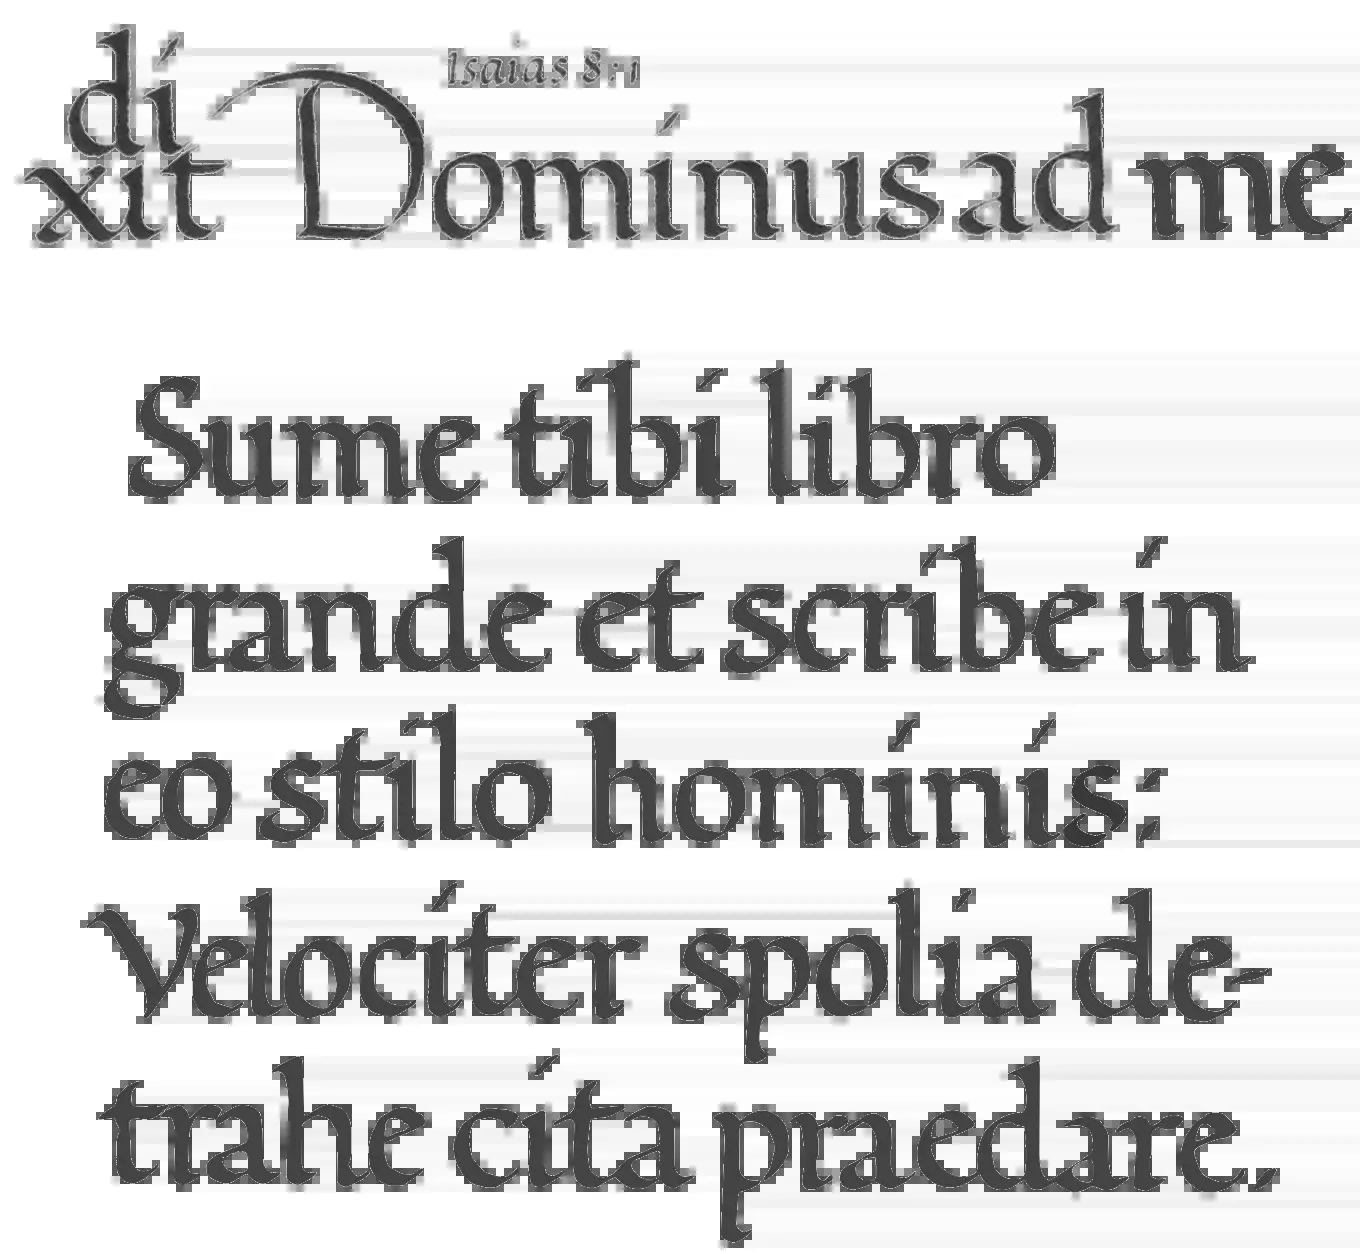 Isaias 8:1
dixit Dominus ad me
Sume tibi libro
grande et scribe in
eo stilo hominis:
Velociter spolia de-
trahe cita praedare.